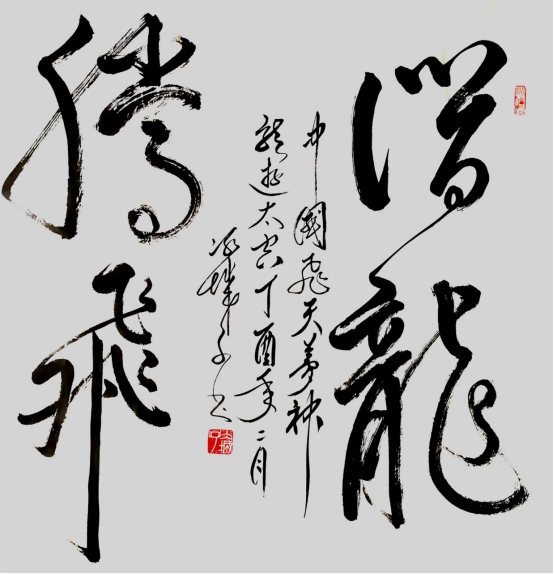 潛龍
中國飛天夢神
龍遊太空丁酉年二月
书
騰飛